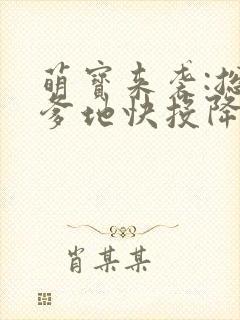 萌宝来袭:总
爹地快投降
肖某某